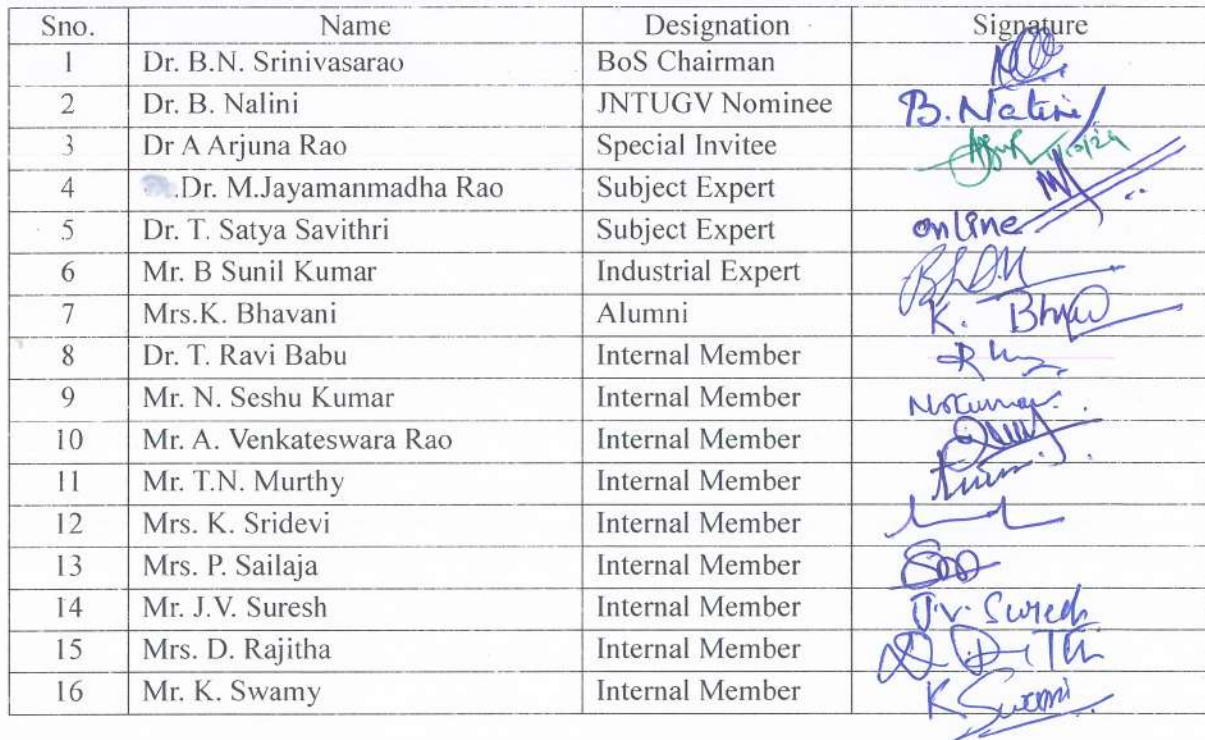 Sno. Name Designation Signature
1 Dr. B.N. Srinivasarao BoS Chairman
2 Dr. B. Nalini JNTUGV Nominee B. Nalini
3 Dr A Arjuna Rao Special Invitee
4 .Dr. M.Jayamanmadha Rao Subject Expert
5 Dr. T. Satya Savithri Subject Expert online
6 Mr. B Sunil Kumar Industrial Expert
7 Mrs.K. Bhavani Alumni K.
8 Dr. T. Ravi Babu Internal Member
9 Mr. N. Seshu Kumar Internal Member
10 Mr. A. Venkateswara Rao Internal Member
11 Mr. T.N. Murthy Internal Member
12 Mrs. K. Sridevi Internal Member
13 Mrs. P. Sailaja Internal Member
14 Mr. J.V. Suresh Internal Member J.V. Suresh
15 Mrs. D. Rajitha Internal Member
16 Mr. K. Swamy Internal Member K Swami